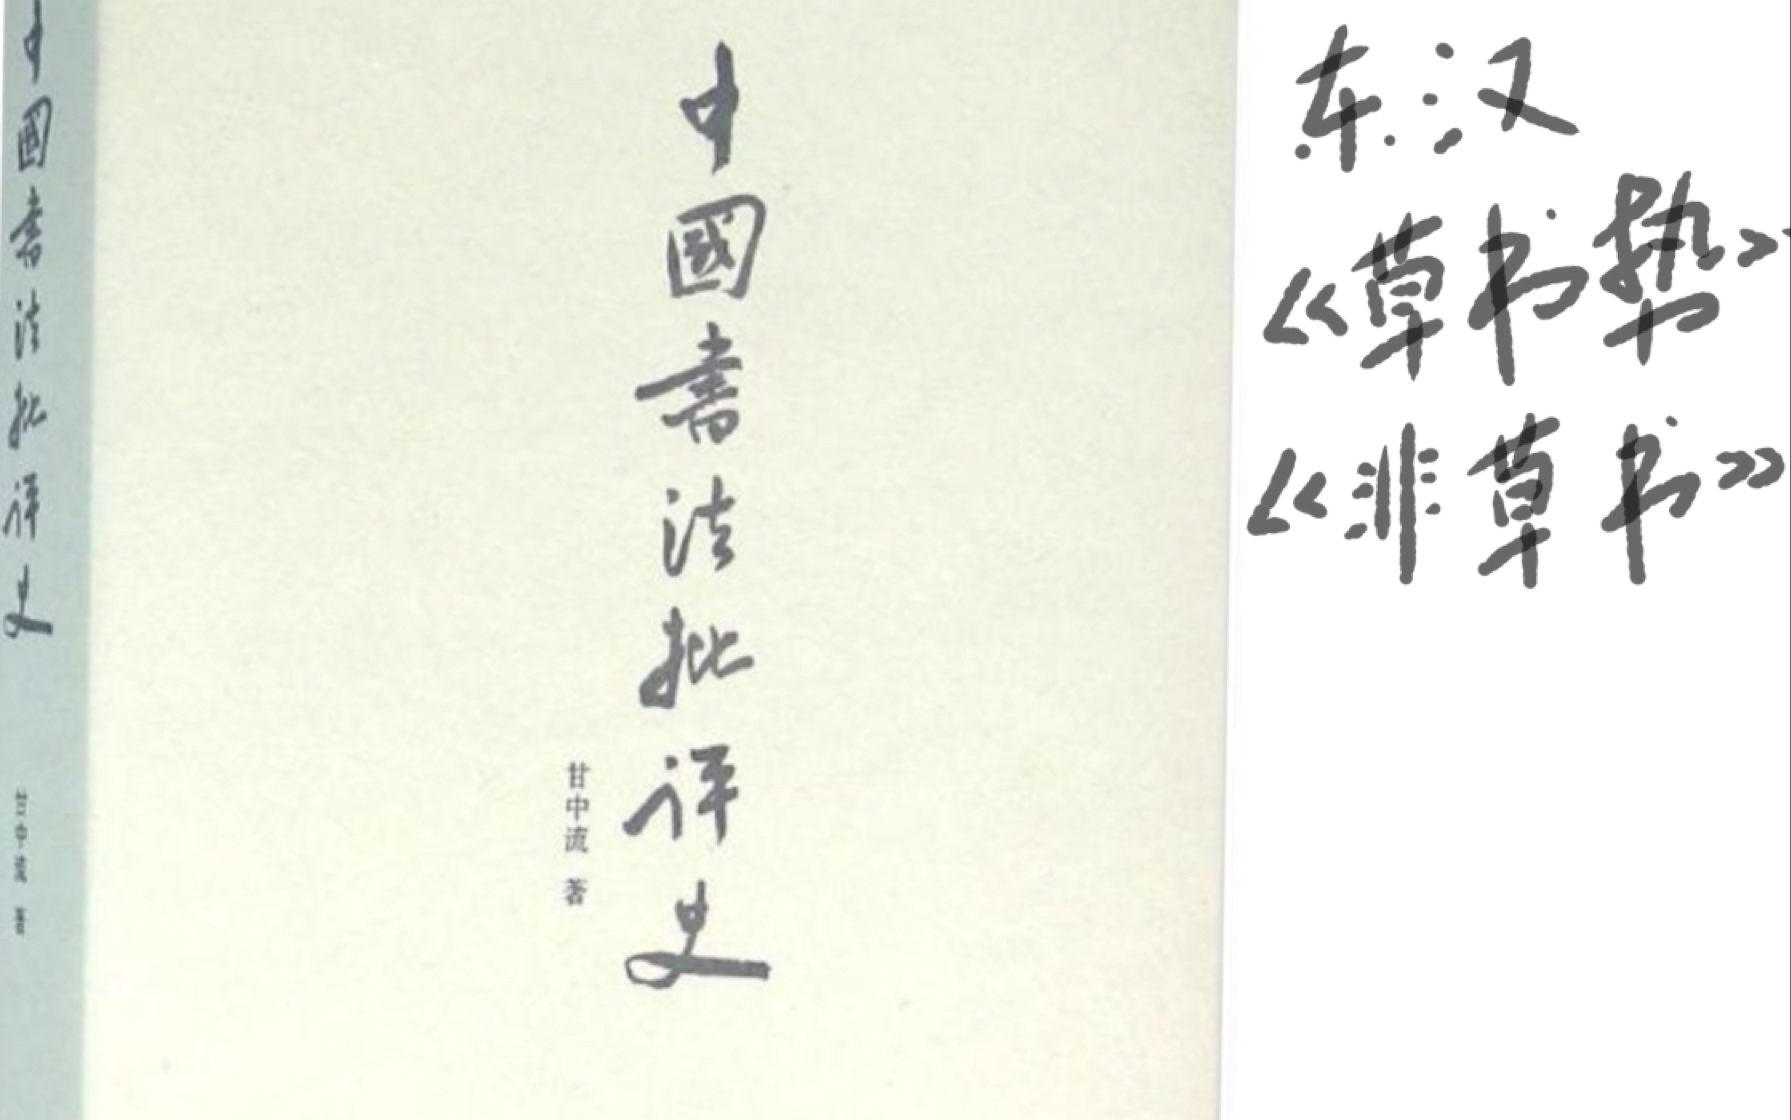 中國書法批评史
甘中流 著
中國書法批评史
甘中流 著
东汉
《草书势》
《非草书》